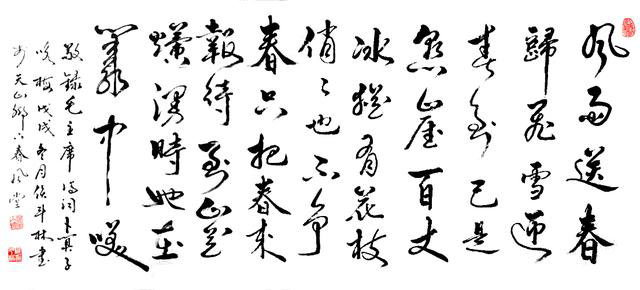 风雨送春
歸飛雪迎
春到已是
懸崖百丈
冰猶有花枝
俏俏也不争
春只把春来
報待到山花
爛漫時她在
叢中笑
敬録毛主席诗词卜算子
咏梅戊戌冬月斗林書
於天山鄉下春風堂